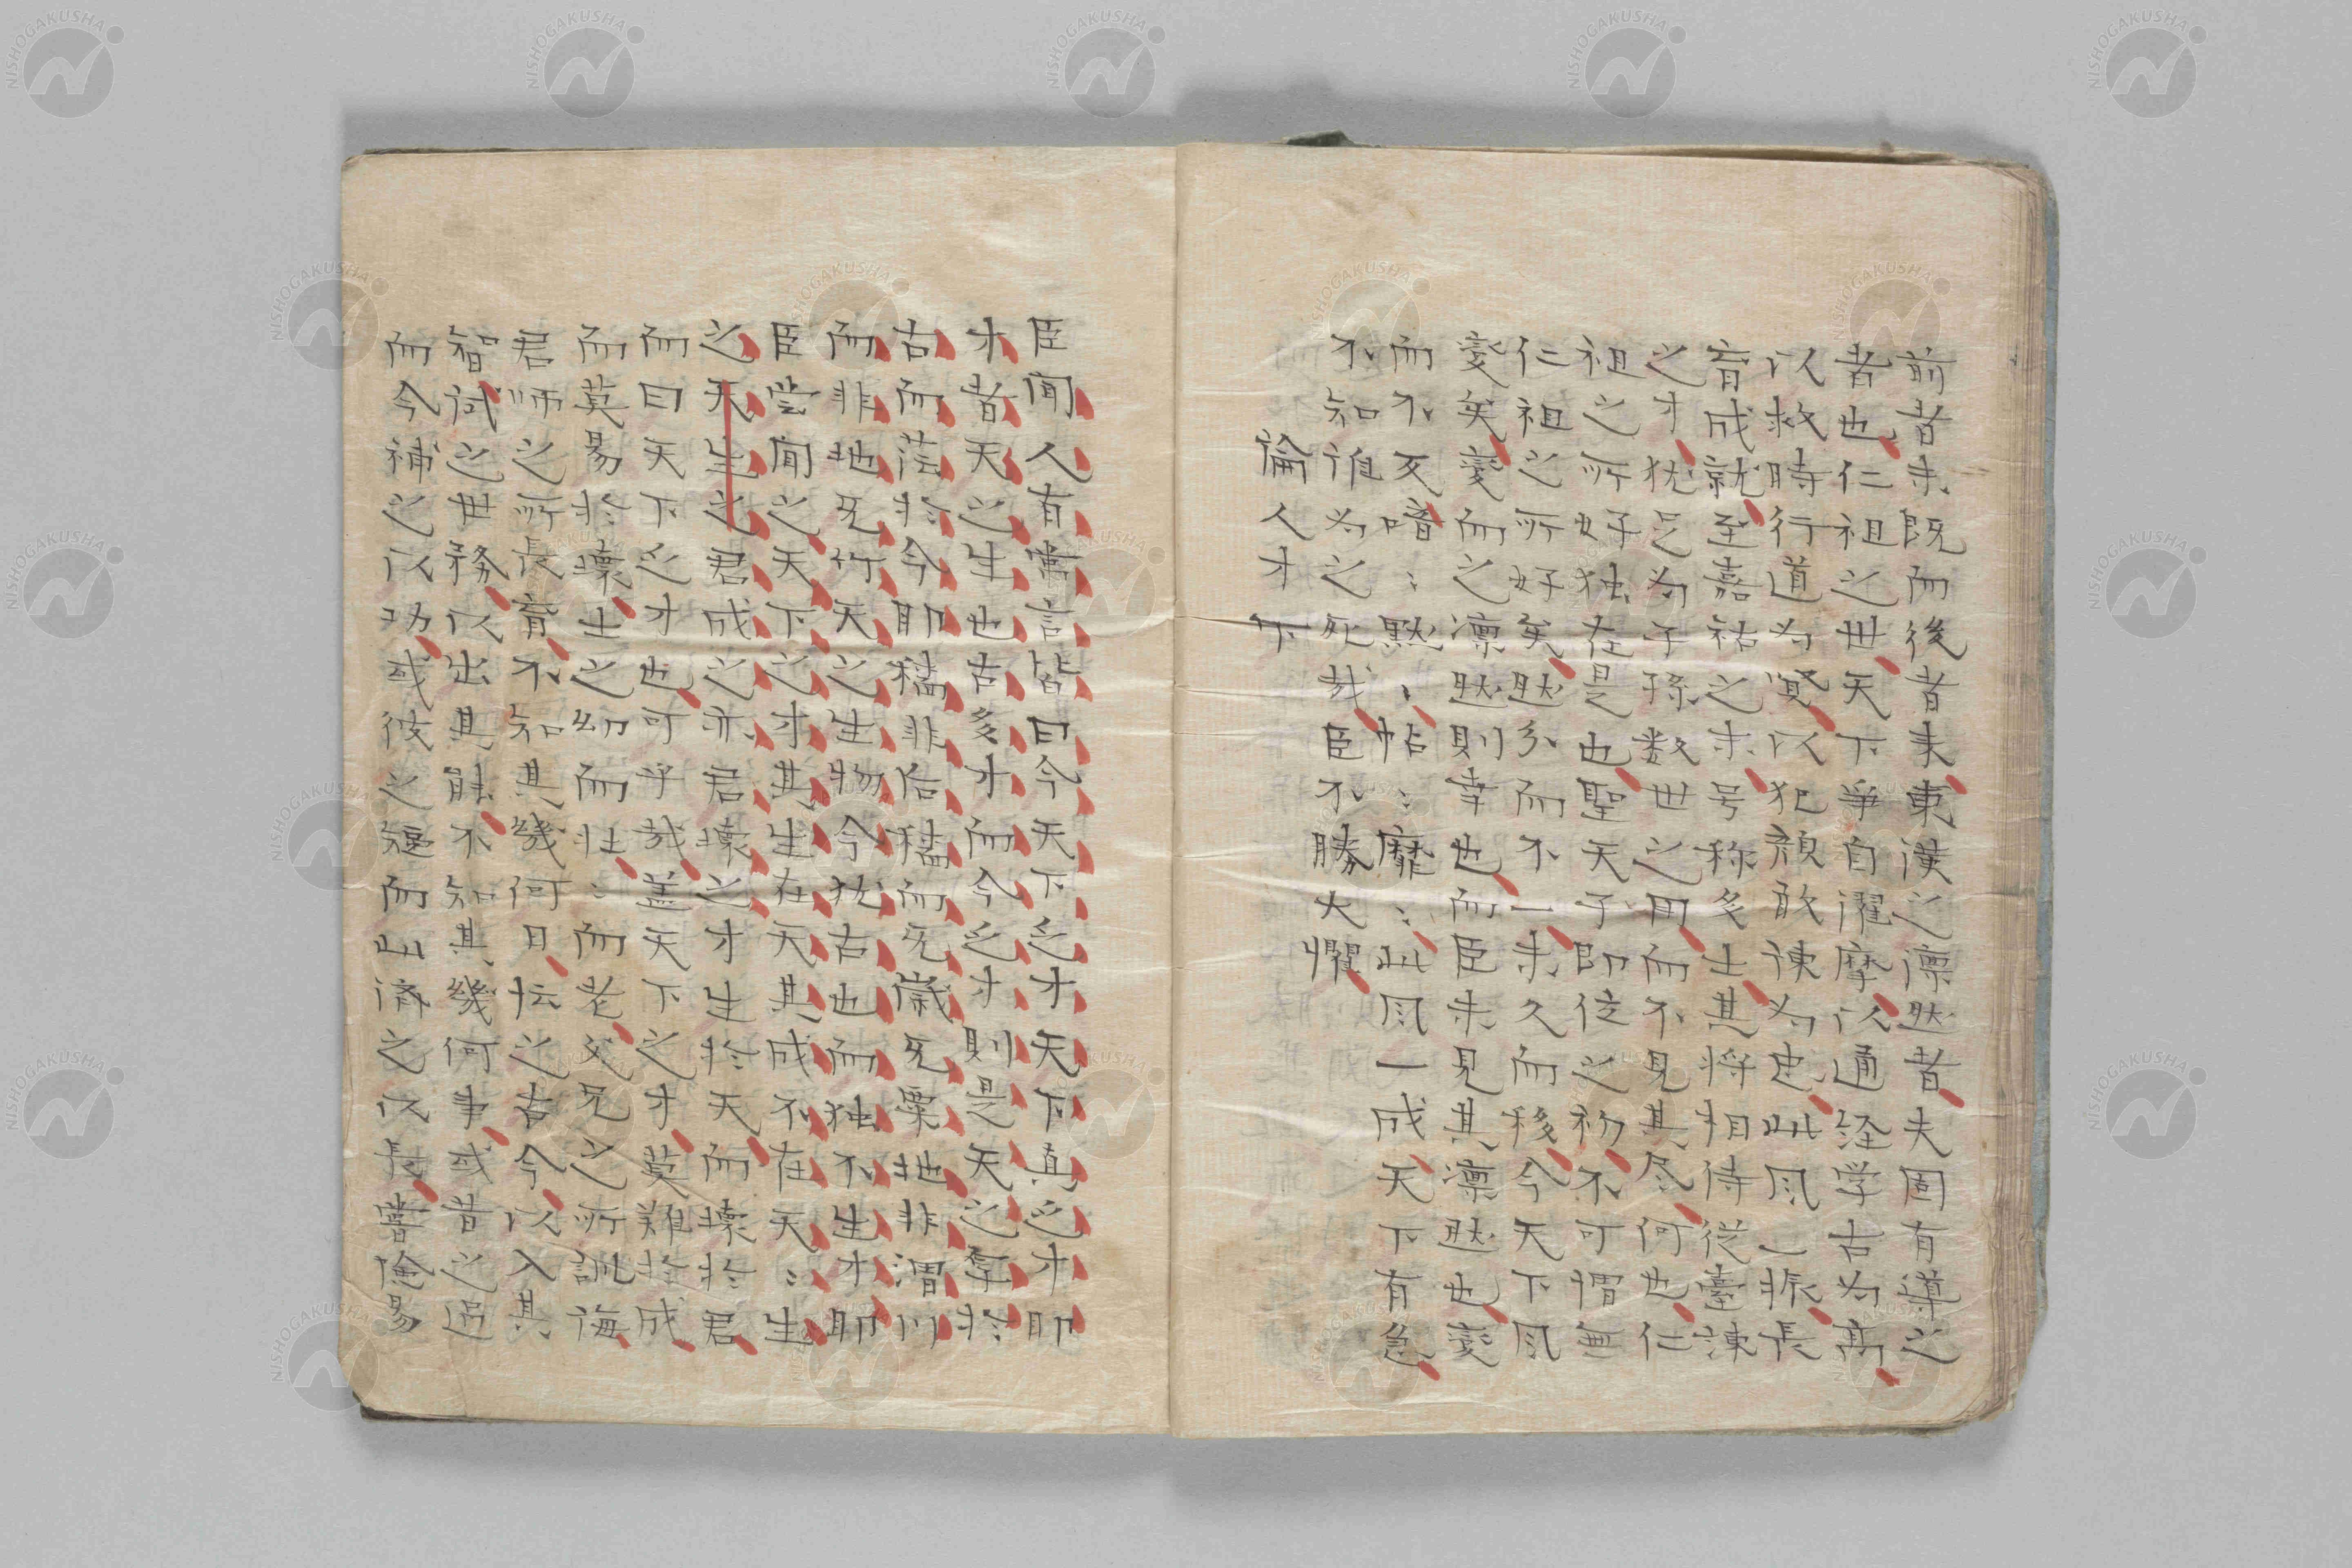 前者未既而後者来東漢之凛然者夫固有導之
者也仁祖之世天下争自濯摩以通経学古為高
以救時行道為賢以犯顔敢諫為忠此風一振長
育成就至嘉祐之末号称多士其将相侍従臺諫
之才犹足為子孫数世之用而不見其尽何也仁
祖之所好独在是也聖天子即位之初不可謂無
仁祖之所好矣然分而不一未久而移今天下風
変矣変而之凛然則幸也而臣未見其凛然也変
而不反喑〻黙〻帖〻靡〻此風一成天下有急
不知誰為之死哉臣不勝大懼
論人才下
臣聞人有常言皆曰今天下乏才天下真乏才耶
才者天之生也古多才而今乏才則是天之厚於
古而薄於今耶穡非后穡而无歳无栗地非渭川
而非地无竹天之生物今犹古也而独不生才耶
臣嘗聞之天下之才其生在天其成不在天〻生
之天生之君成之亦君壊之才生於天而壊於君
而曰天下乏才也可乎哉盖天下之才莫難於成
而莫易於壊士之幼而壮〻而老父兄之所訓誨
君師之所長育不知其幾何日払之古今以入其
智試之世務以出其能不知其幾何事或昔之過
而今補之以功或彼之短而此済之以長嘗倹易